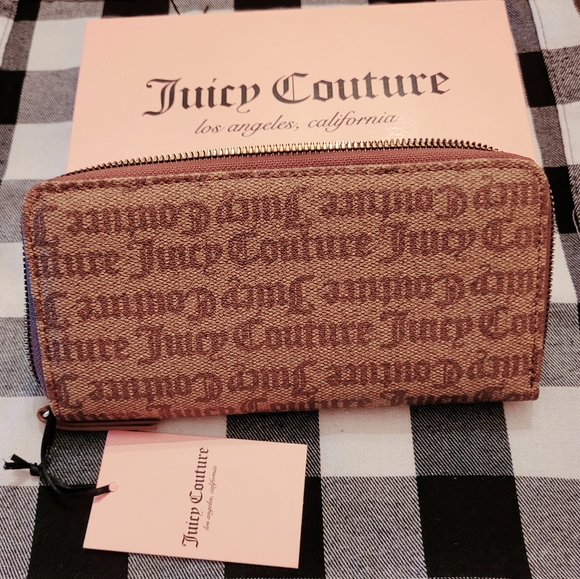 Juicy Couture
los angeles, california
Juicy Couture Juicy
Couture Juicy Couture Juicy Cou
Juicy Couture Juicy Couture
uture Juicy Couture Juicy Cou
Juicy Couture Juicy Couture
Couture Juicy Couture Juicy
Juicy Couture
los angeles, california